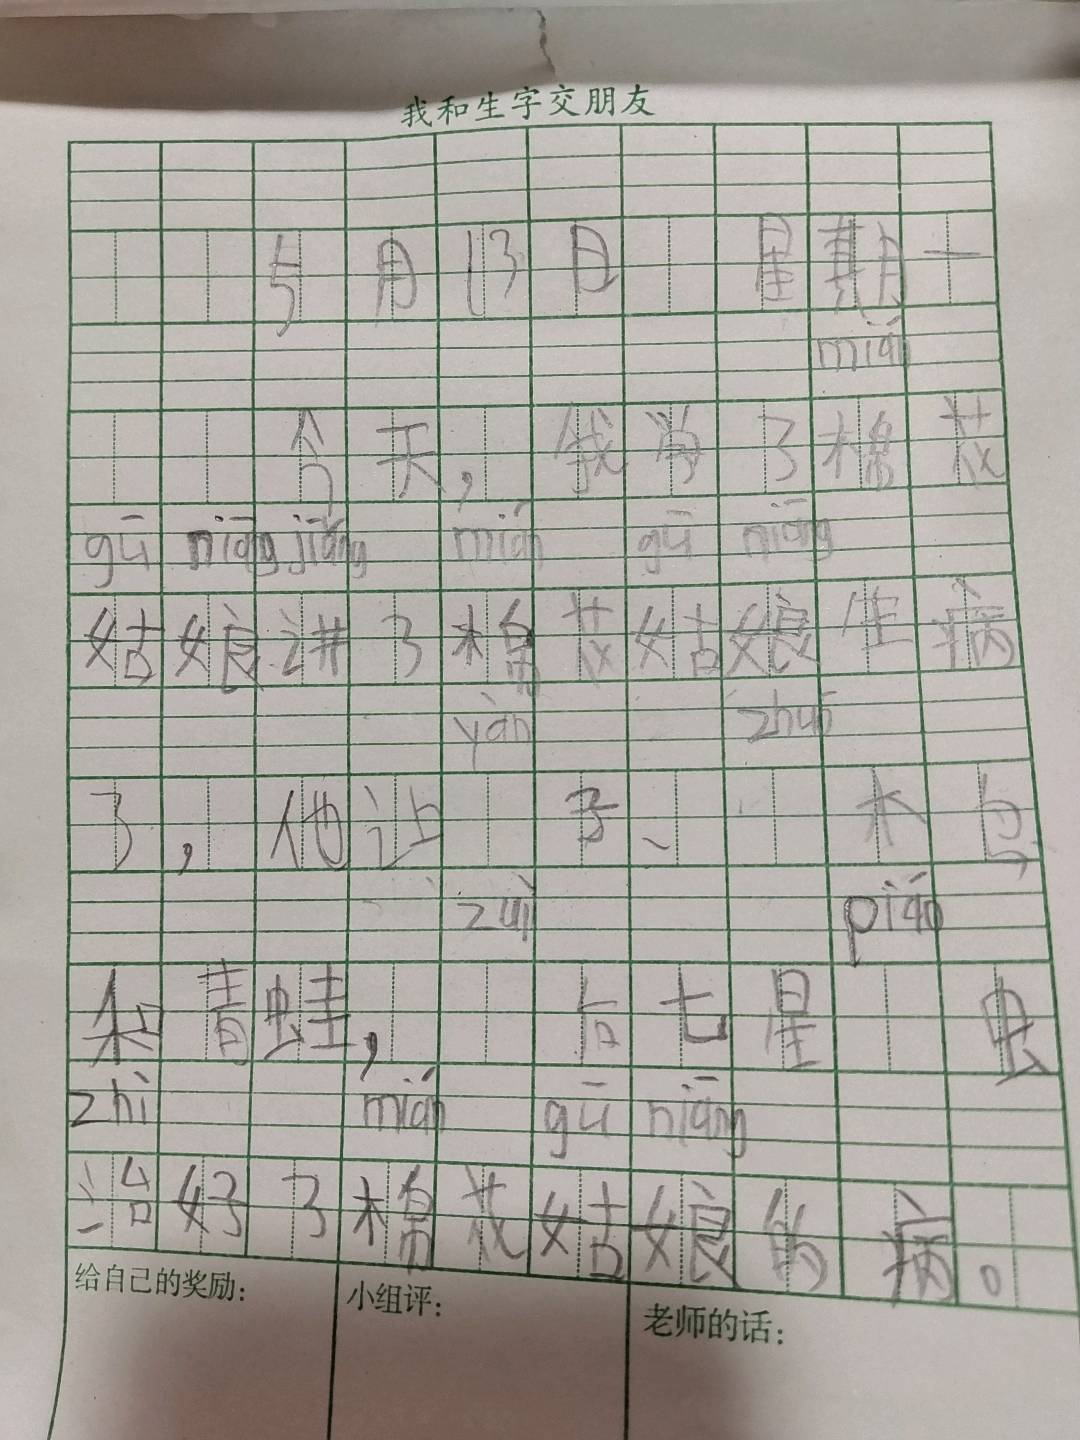 我和生字交朋友
5月13日 星期一
mián
今天,我学了棉花
gū niáng jiǎng mián gū niáng
姑娘讲了棉花姑娘生病
yàn zhuó
了,他让 子、 木鸟
zuì piáo
和青蛙, 后七星 虫
zhì mián gū niáng
治好了棉花姑娘的病。
给自己的奖励: 小组评: 老师的话: